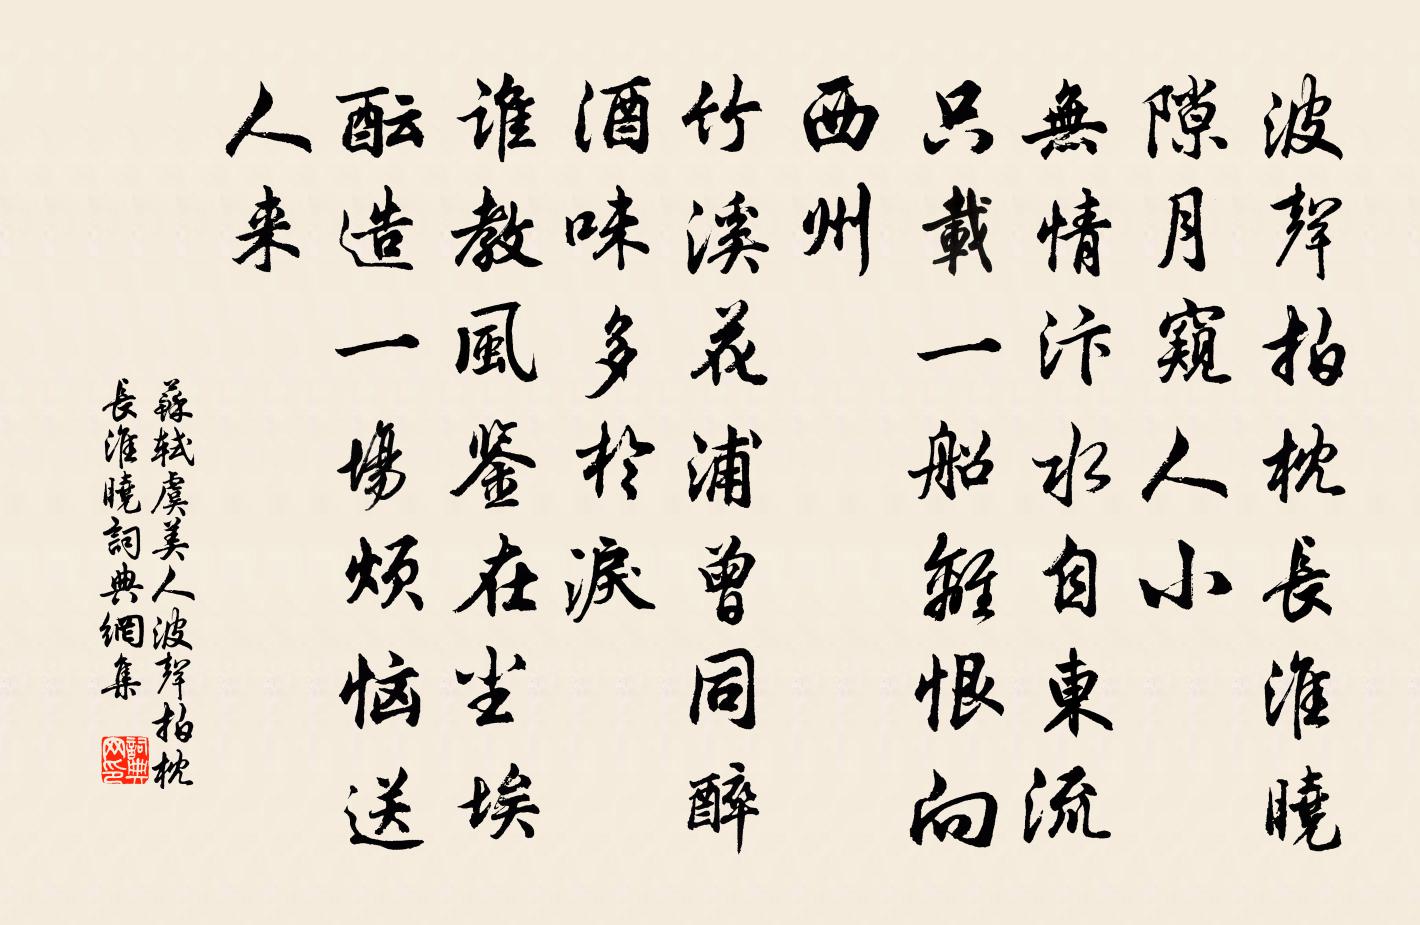 波聲拍枕長淮曉
隙月窺人小
無情汴水自東流
只載一船離恨向
西州
竹溪花浦曾同醉
酒味多於淚
谁教風鉴在尘埃
酝造一場烦恼送
人来
蘇轼虞美人波聲拍枕
長淮曉詞典網集
詞典
网印